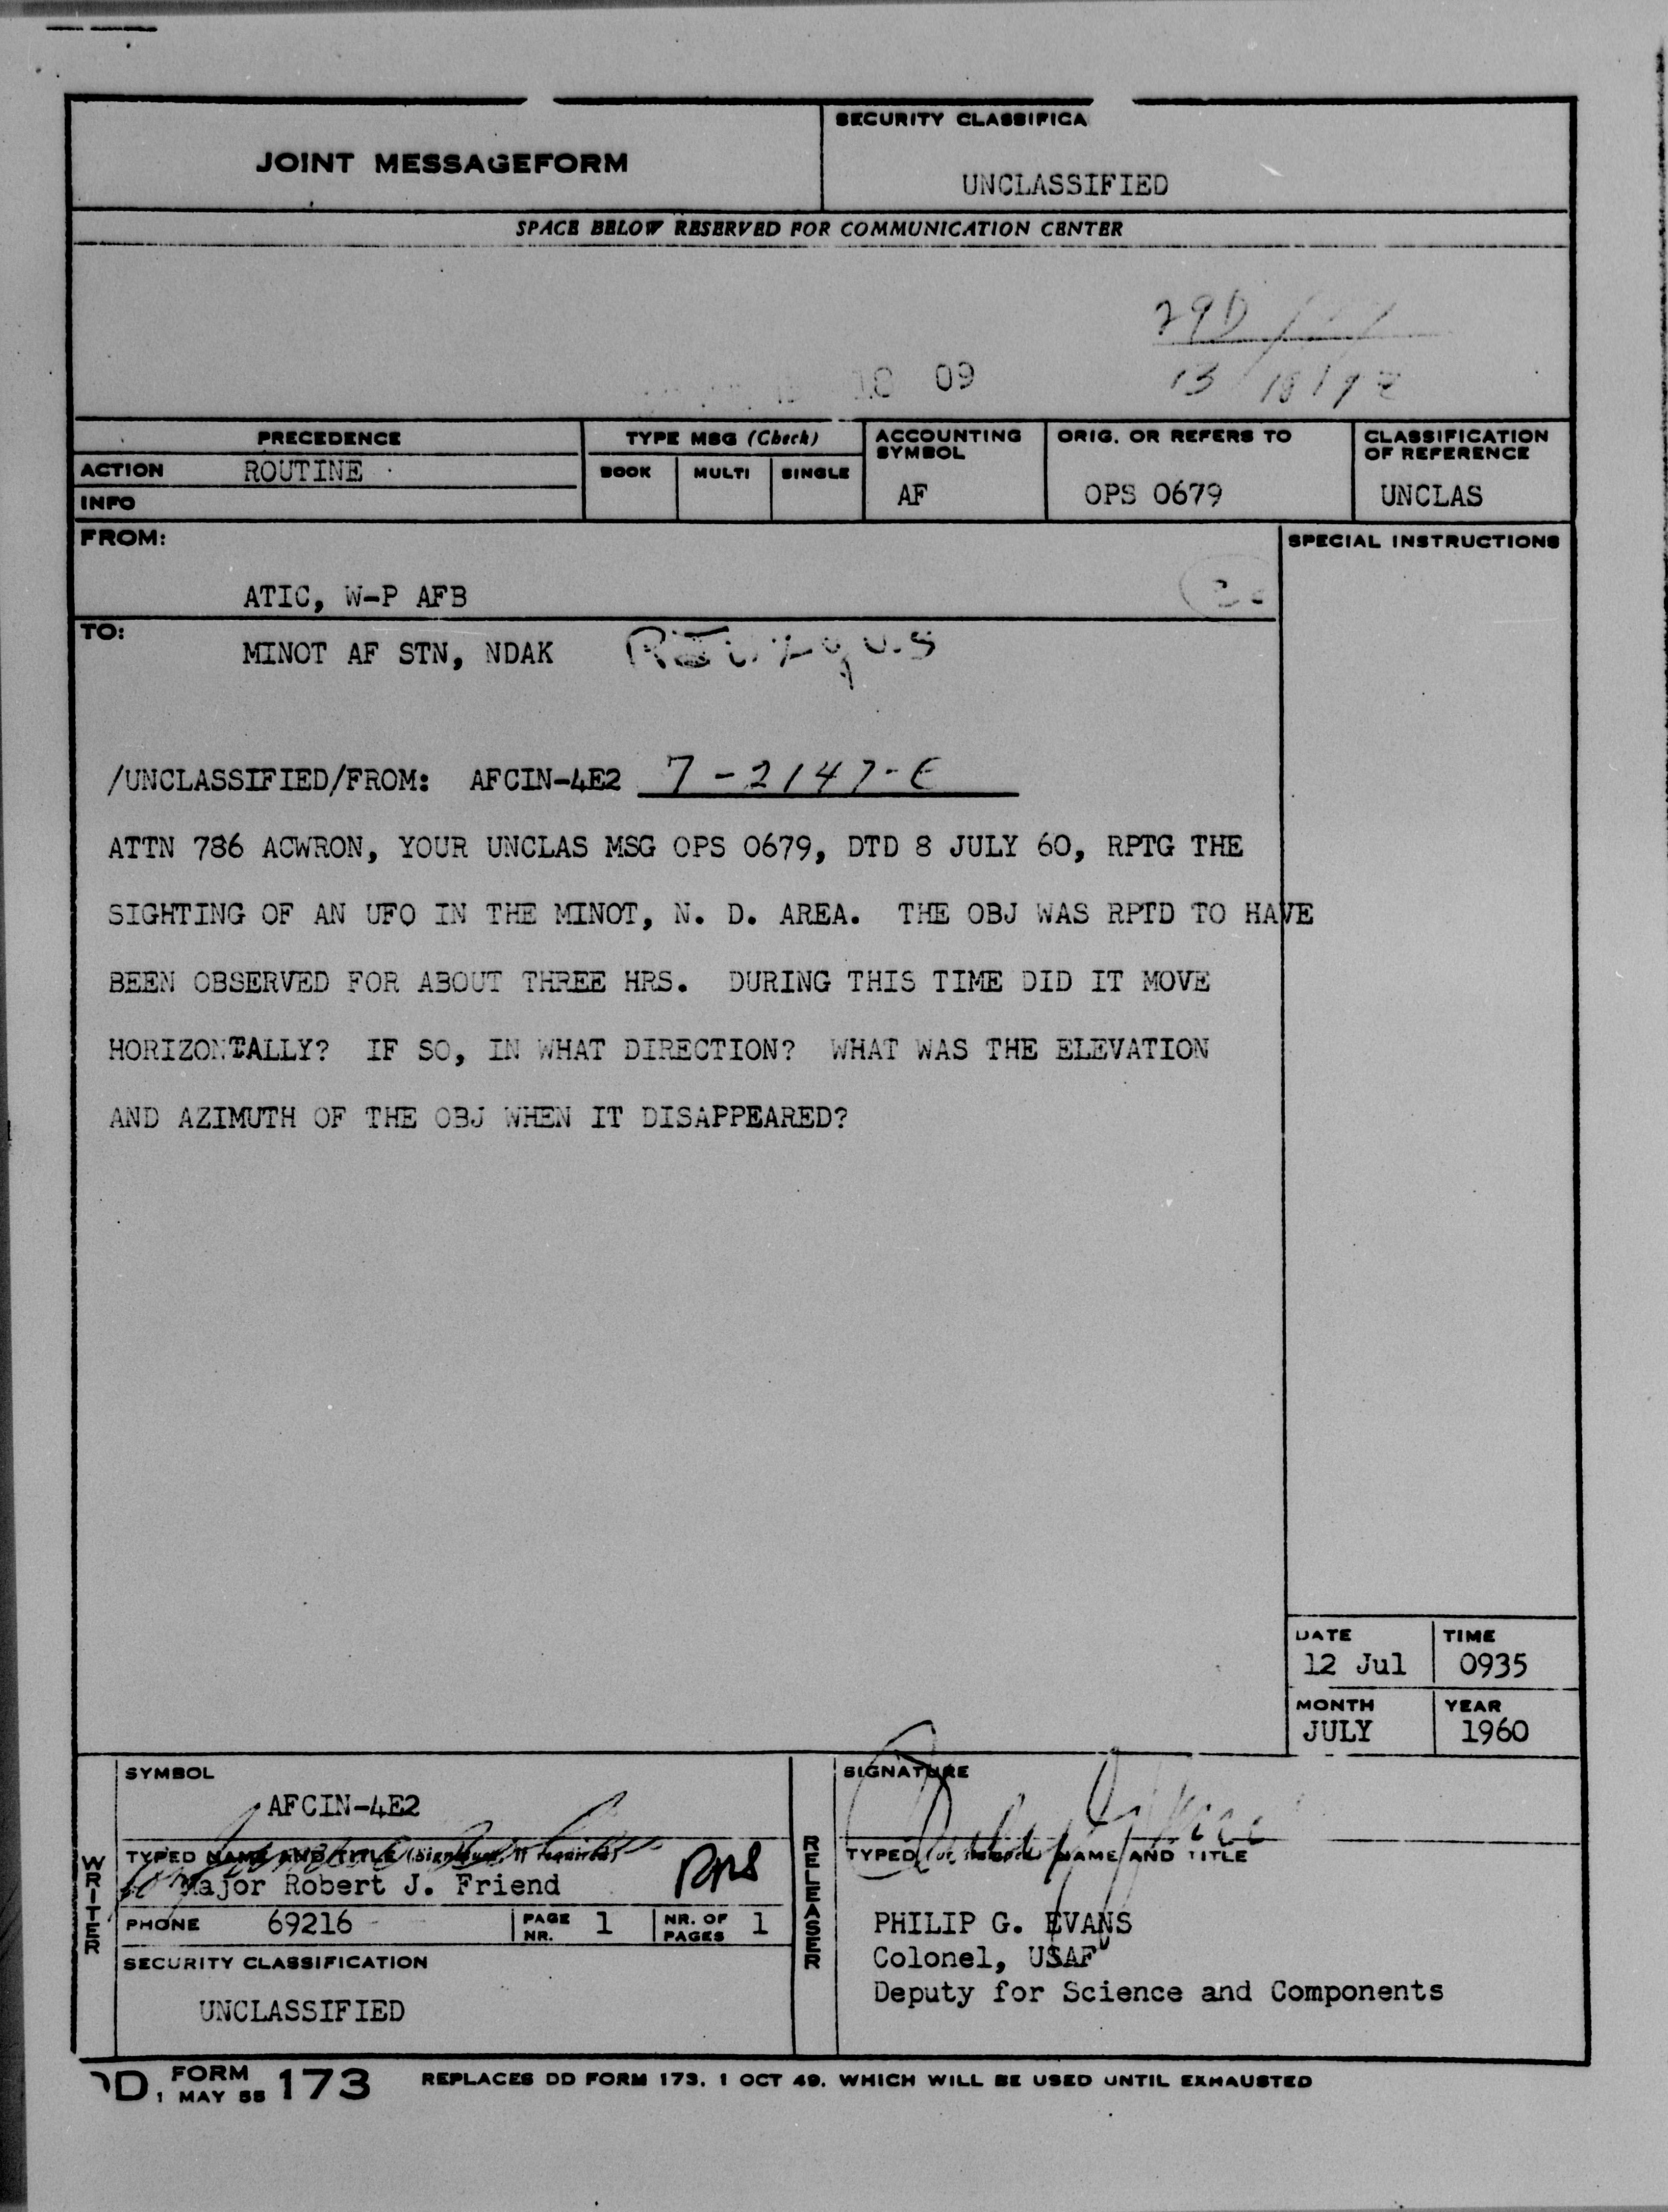 JOINT MESSAGEFORM
SECURITY CLASSIFICA
UNCLASSIFIED
SPACE BELOW RESERVED FOR COMMUNICATION CENTER
09
PRECEDENCE
ACTION ROUTINE
INFO
TYPE MSG (Check)
BOOK MULTI SINGLE
ACCOUNTING SYMBOL
AF
ORIG. OR REFERS TO
OPS 0679
CLASSIFICATION OF REFERENCE
UNCLAS
FROM:
ATIC, W-P AFB
SPECIAL INSTRUCTIONS
TO:
MINOT AF STN, NDAK
/UNCLASSIFIED/FROM: AFCIN-4E2 7-2147-E
ATTN 786 ACWRON, YOUR UNCLAS MSG OPS 0679, DTD 8 JULY 60, RPTG THE
SIGHTING OF AN UFO IN THE MINOT, N. D. AREA. THE OBJ WAS RPTD TO HAVE
BEEN OBSERVED FOR ABOUT THREE HRS. DURING THIS TIME DID IT MOVE
HORIZONTALLY? IF SO, IN WHAT DIRECTION? WHAT WAS THE ELEVATION
AND AZIMUTH OF THE OBJ WHEN IT DISAPPEARED?
DATE TIME
12 Jul 0935
MONTH YEAR
JULY 1960
WRITER
SYMBOL
AFCIN-4E2
TYPED NAME AND TITLE (Signature, if required)
Major Robert J. Friend
PHONE 69216 PAGE NR. 1 NR. OF PAGES 1
SECURITY CLASSIFICATION
UNCLASSIFIED
RELEASER
SIGNATURE
TYPED (or stamped) NAME AND TITLE
PHILIP G. EVANS
Colonel, USAF
Deputy for Science and Components
DD FORM 1 MAY 55 173 REPLACES DD FORM 173, 1 OCT 49, WHICH WILL BE USED UNTIL EXHAUSTED